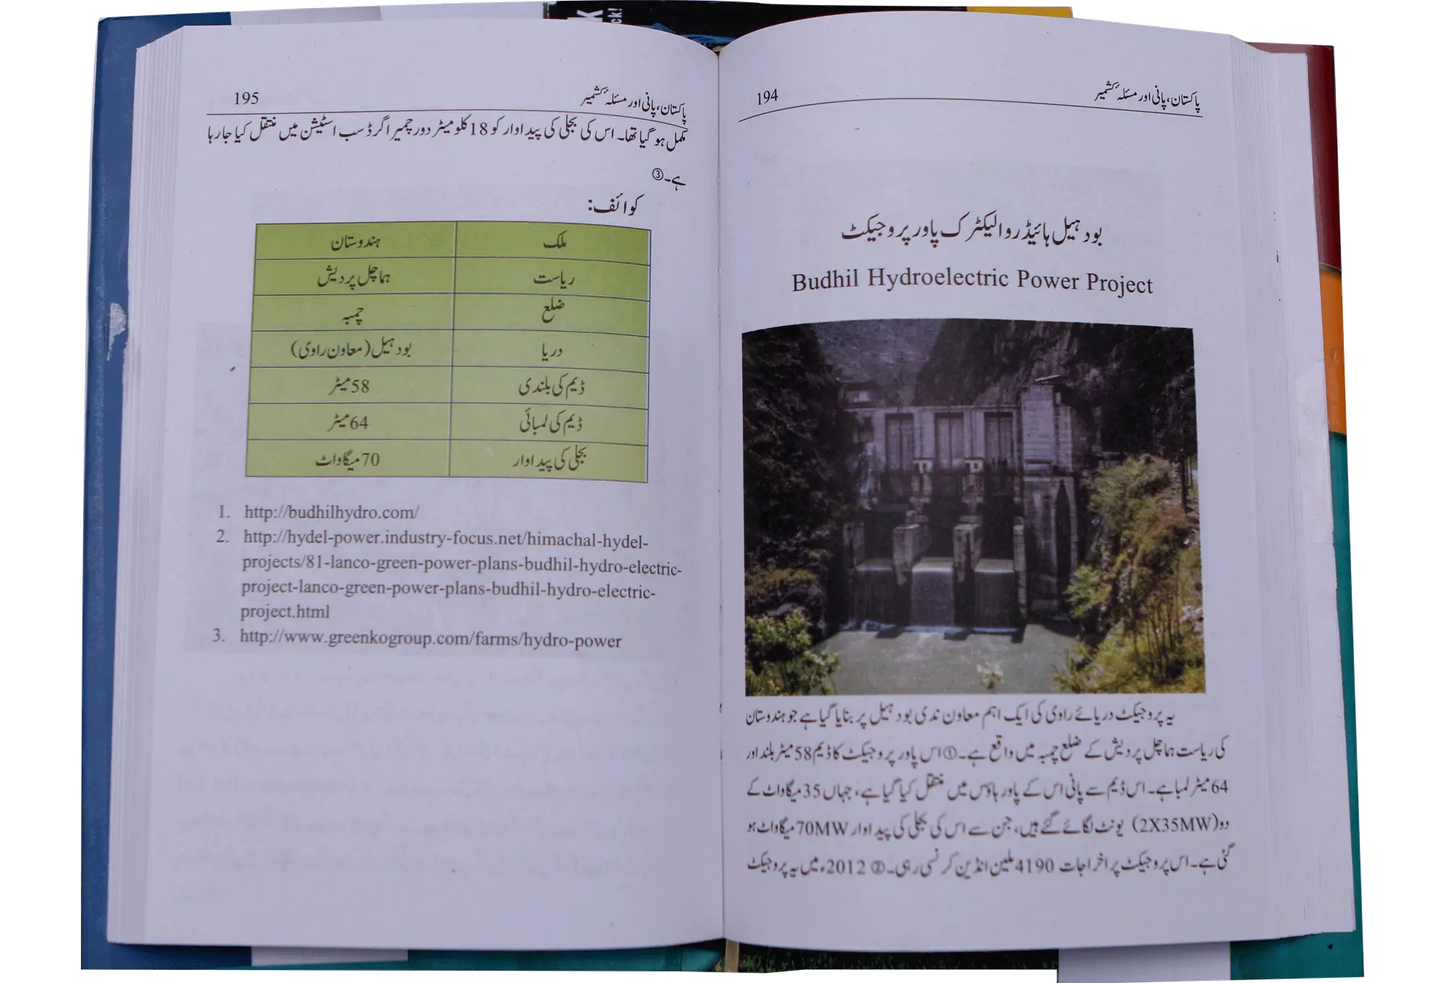 194
پاکستان، پانی اور مسئلہ کشمیر
بودہیل ہائیڈرو الیکٹرک پاور پروجیکٹ
Budhil Hydroelectric Power Project
یہ پروجیکٹ دریائے راوی کی ایک اہم معاون ندی بودہیل پر بنایا گیا ہے جو ہندوستان
کی ریاست ہماچل پردیش کے ضلع چمبہ میں واقع ہے۔① اس پاور پروجیکٹ کا ڈیم 58 میٹر بلند اور
64 میٹر لمبا ہے۔ اس ڈیم سے پانی اس کے پاور ہاؤس میں منتقل کیا گیا ہے، جہاں 35 میگاواٹ کے
دو (2X35MW) یونٹ لگائے گئے ہیں، جن سے اس کی بجلی کی پیداوار 70MW میگاواٹ ہو
گئی ہے۔ اس پروجیکٹ پر اخراجات 4190 ملین انڈین کرنسی رہی۔② 2012ء میں یہ پروجیکٹ
195
پاکستان، پانی اور مسئلہ کشمیر
مکمل ہو گیا تھا۔ اس کی بجلی کی پیداوار کو 18 کلومیٹر دور چمیرا گرڈ سب اسٹیشن میں منتقل کیا جا رہا
ہے۔③
کوائف:
ملک ہندوستان
ریاست ہماچل پردیش
ضلع چمبہ
دریا بودہیل (معاون راوی)
ڈیم کی بلندی 58 میٹر
ڈیم کی لمبائی 64 میٹر
بجلی کی پیداوار 70 میگاواٹ
1. http://budhilhydro.com/
2. http://hydel-power.industry-focus.net/himachal-hydel-
projects/81-lanco-green-power-plans-budhil-hydro-electric-
project-lanco-green-power-plans-budhil-hydro-electric-
project.html
3. http://www.greenkogroup.com/farms/hydro-power